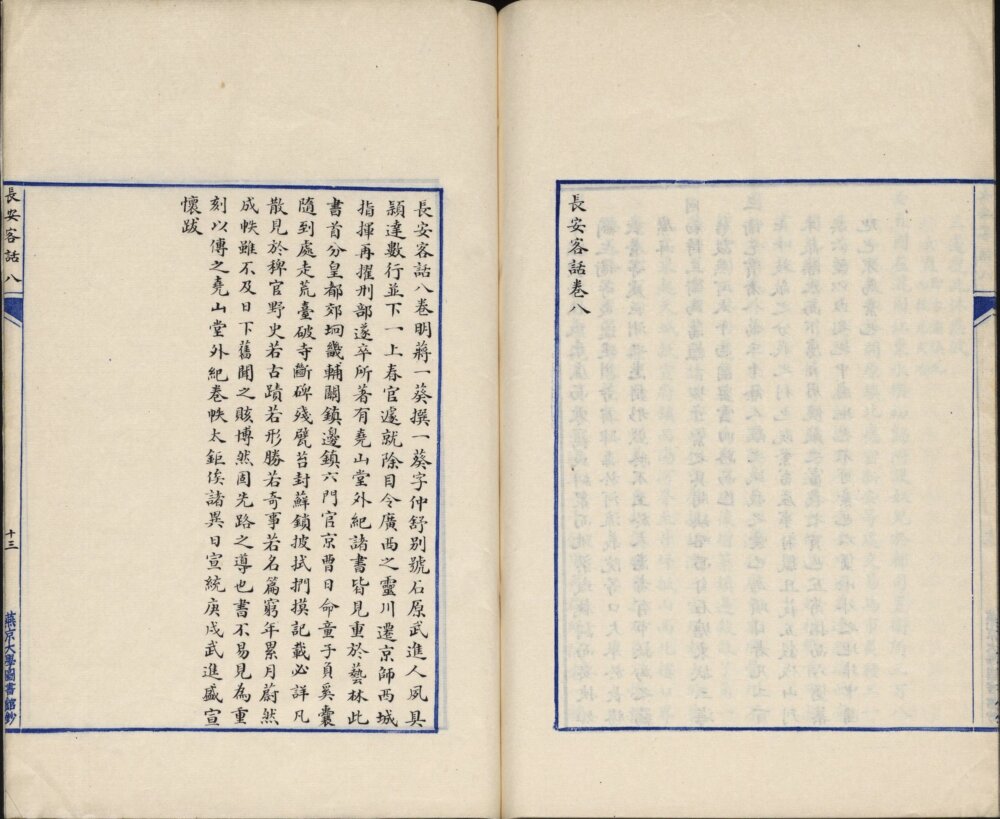 長安客話卷八
長安客話八卷明蔣一葵撰一葵字仲舒別號石原武進人夙具
穎達數行並下一上春官遽就除目令廣西之靈川遷京師西城
指揮再擢刑部遂卒所著有堯山堂外紀諸書皆見重於藝林此
書首分皇都郊坰畿輔關鎮邊鎮六門官京曹日命童子負奚囊
隨到處走荒臺破寺斷碑殘甓苔封蘚鎖披拭捫摸記載必詳凡
散見於稗官野史若古蹟若形勝若奇事若名篇窮年累月蔚然
成帙雖不及日下舊聞之賅博然固先路之導也書不易見為重
刻以傳之堯山堂外紀卷帙太鉅俟諸異日宣統庚戌武進盛宣
懷跋
長安客話 八
十三
燕京大學圖書館鈔